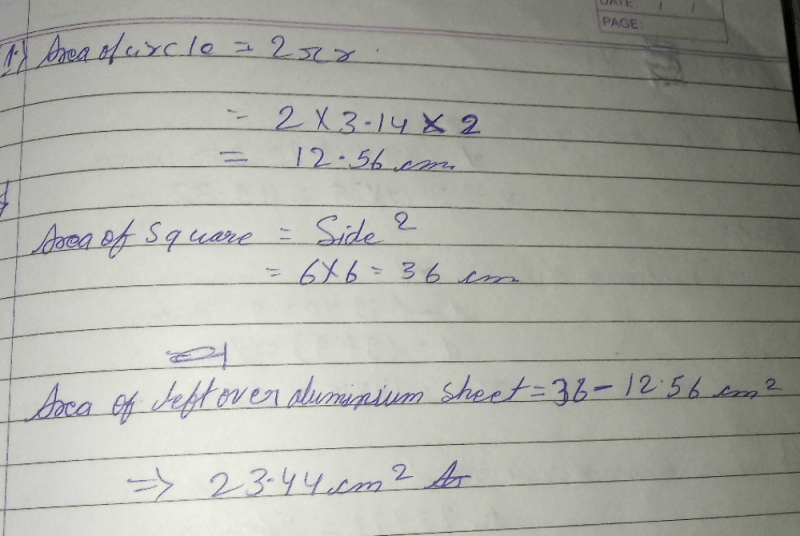 DATE: / /
PAGE:
1) Area of circle = 2πr.
= 2 X 3.14 X 2
= 12.56 cm
Area of Square = Side²
= 6X6 = 36 cm
Area of leftover aluminium sheet = 36 - 12.56 cm²
=> 23.44 cm² A